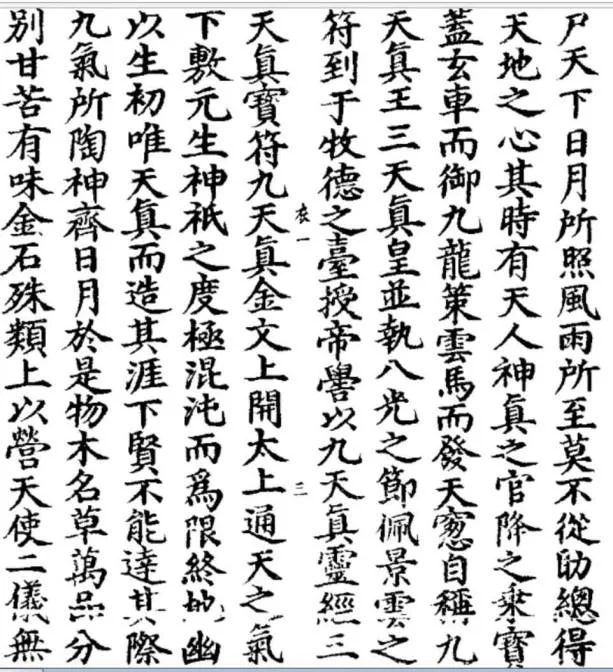 尸天下日月所照風雨所至莫不從助總得
天地之心其時有天人神眞之官降之乗寶
蓋玄車而御九龍策雲馬而發天窻自稱九
天眞王三天眞皇並執八光之節佩景雲之
符到于牧德之臺授帝嚳以九天眞靈經三
衣一
三
天眞寶符九天眞金文上開太上通天之氣
下敷元生神祇之度極混沌而爲限終地幽
以生初唯天眞而造其涯下賢不能達其際
九氣所陶神齊日月於是物木名草萬品分
別甘苦有味金石殊類上以營天使二儀無